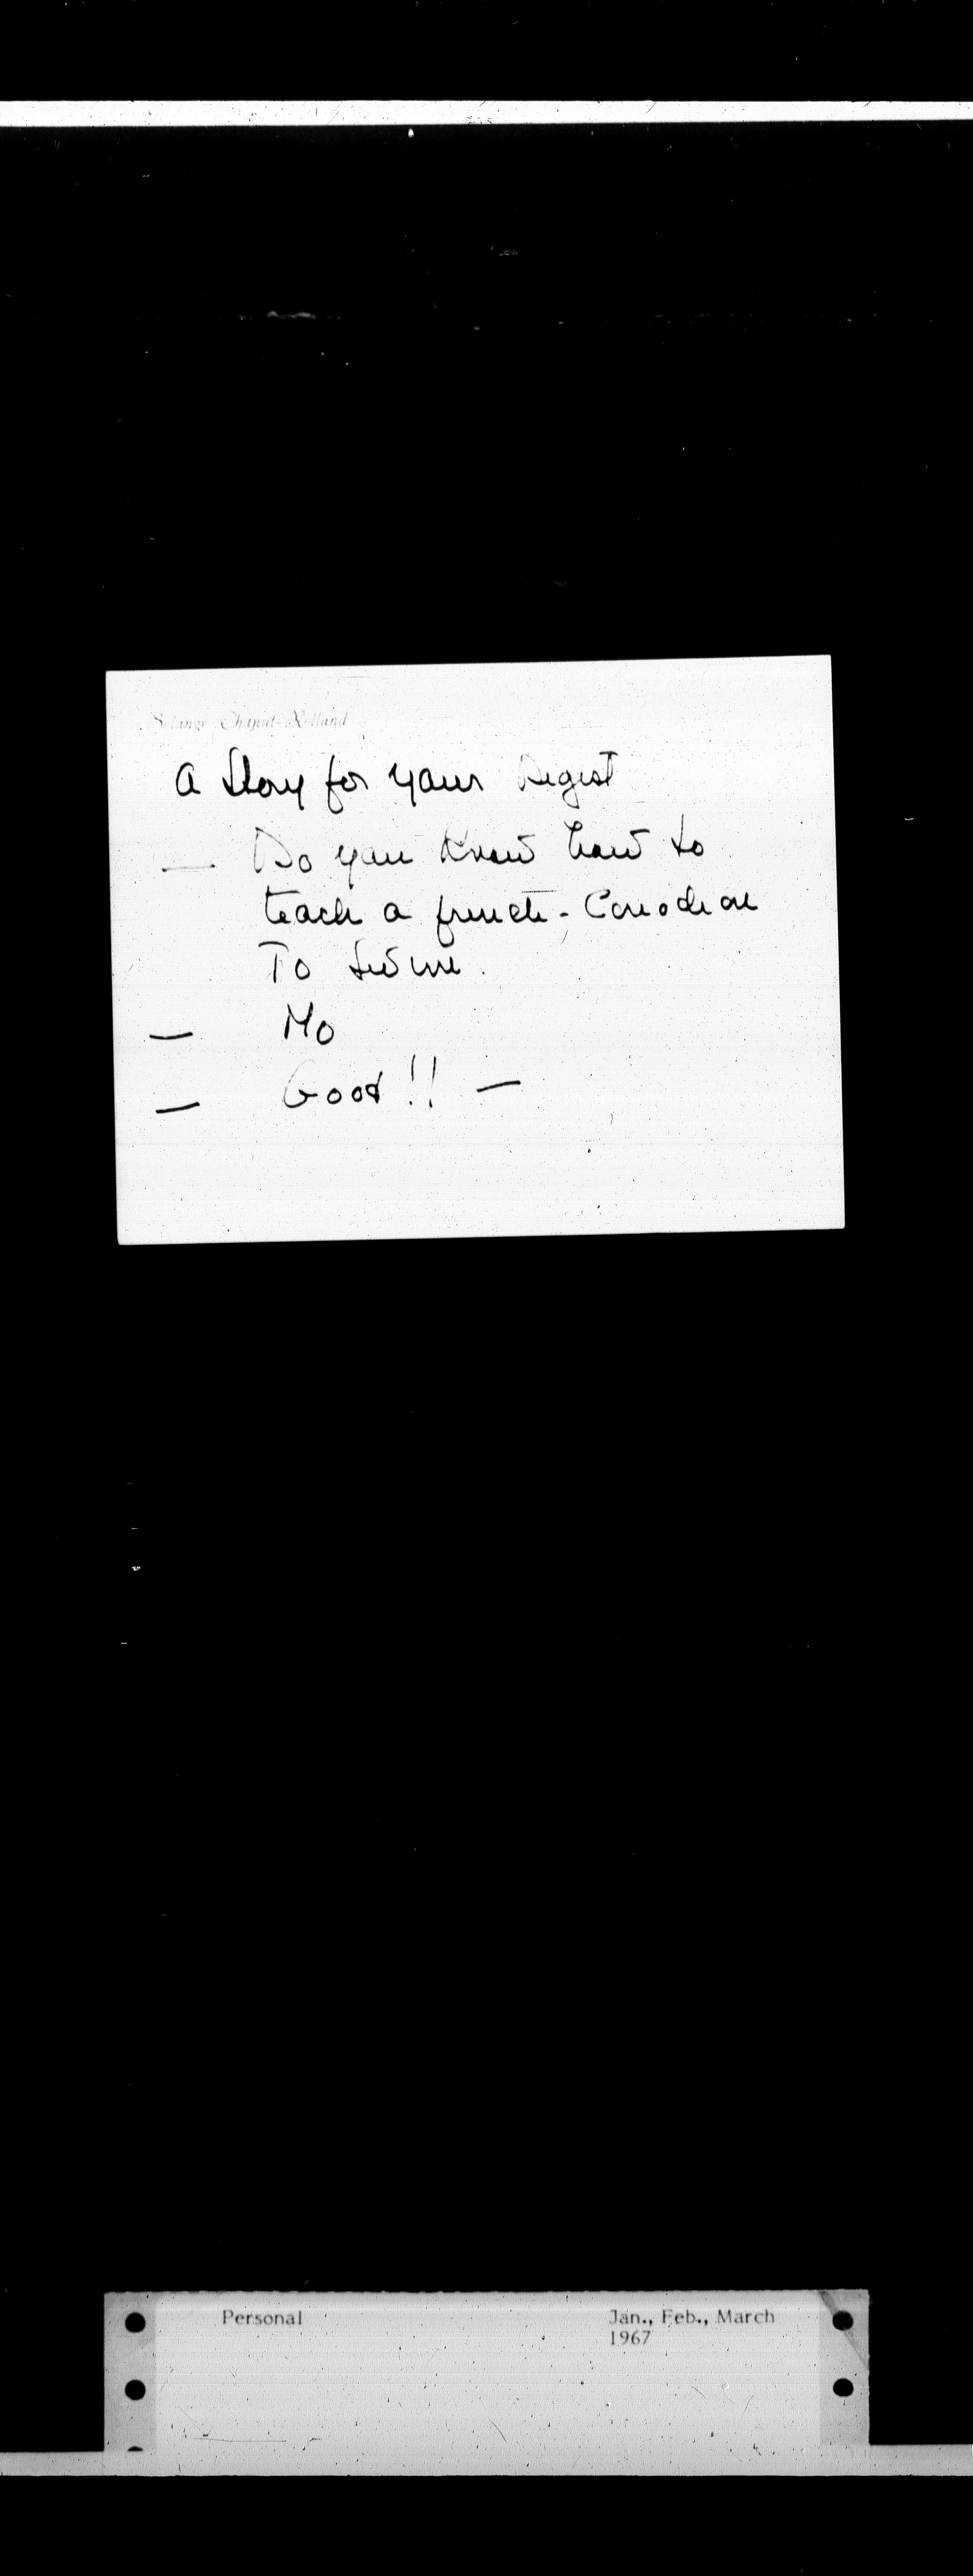 Solange Chaput-Rolland
A Story for your Digest
— Do you know how to
teach a french-Canadian
To swim.
— No
— Good !! —
Personal
Jan., Feb., March
1967